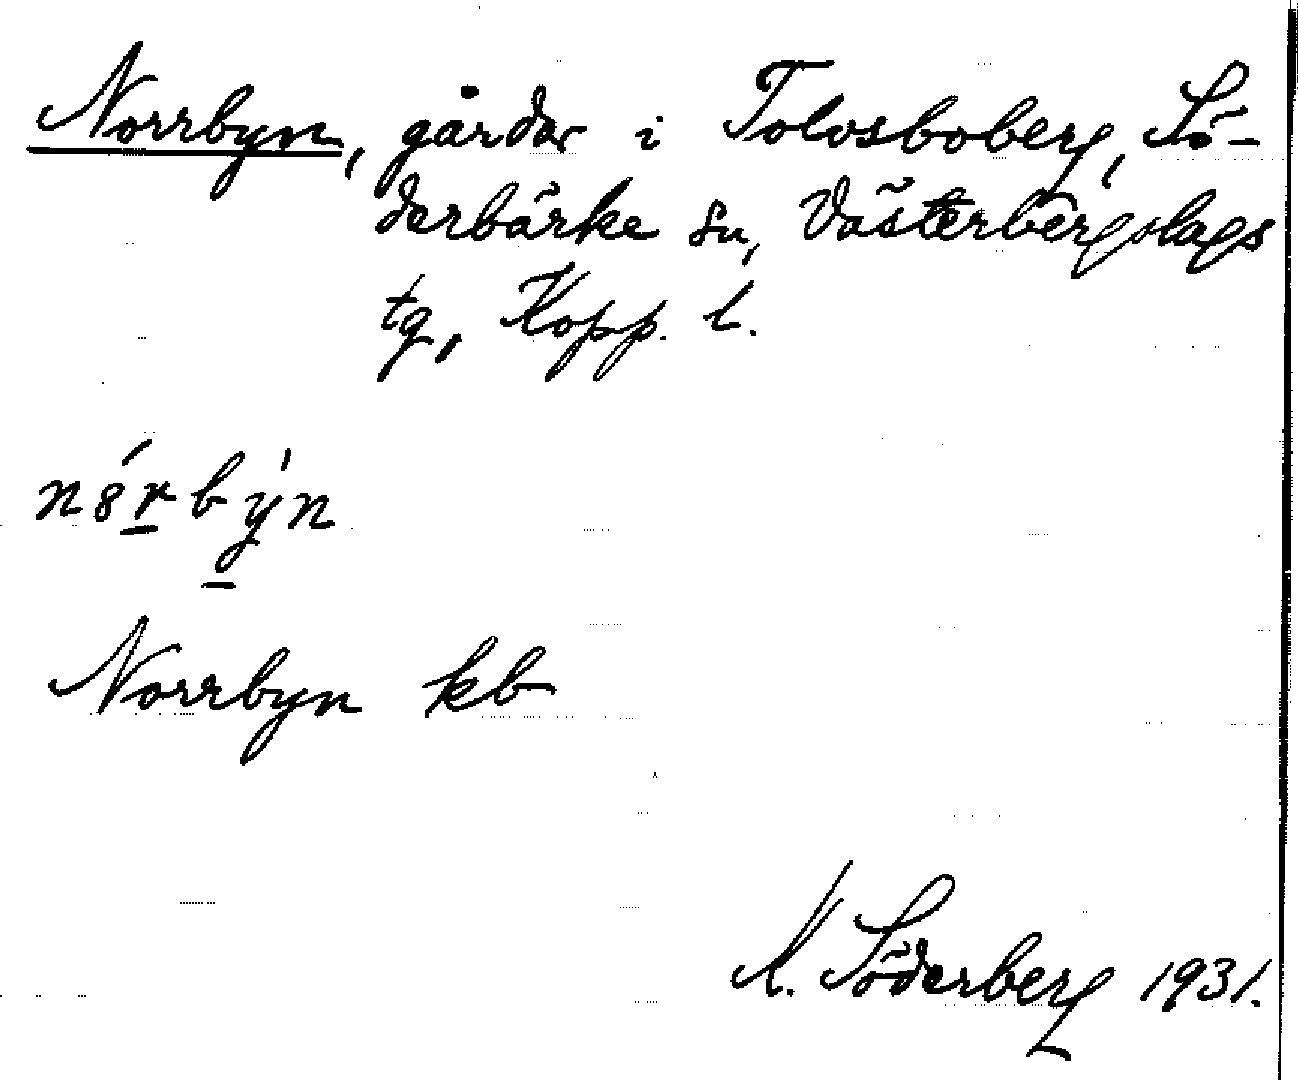 Norrbyn, gårdar i Tolvsboberg, Sö-
derbärke sn, Västerbergslags
tg, Kopp. l.
nȣ́rbýn
Norrbyn kb
Söderberg 1931.